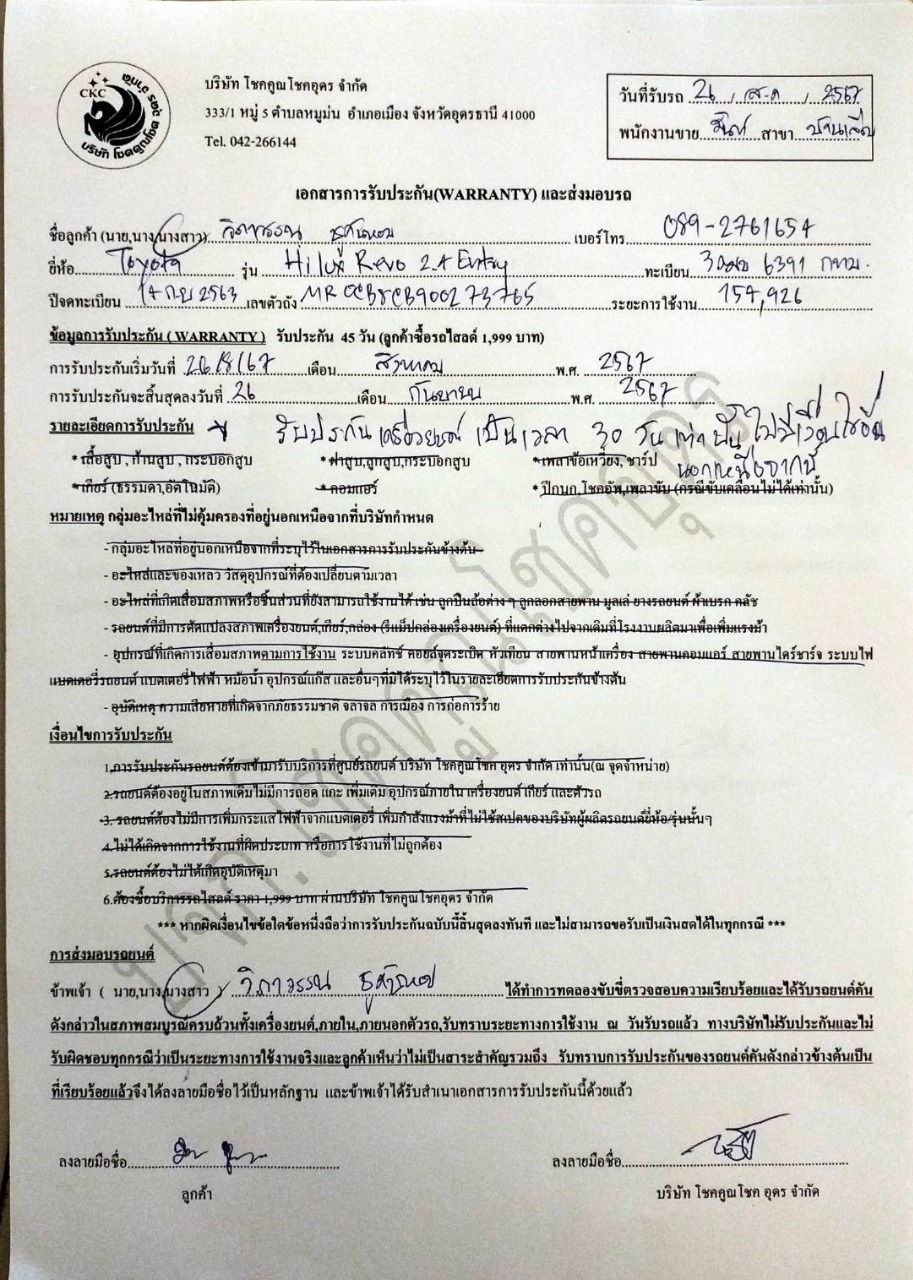 CKC
บริษัท โชคคูณโชค อุดร จำกัด
บริษัท โชคคูณโชคอุดร จำกัด
333/1 หมู่ 5 ตำบลหมูม่น อำเภอเมือง จังหวัดอุดรธานี 41000
Tel. 042-266144
วันที่รับรถ 26 / ส.ค / 2567
พนักงานขาย สาขา
เอกสารการรับประกัน(WARRANTY) และส่งมอบรถ
ชื่อลูกค้า (นาย,นาง,นางสาว) วิภาวรรณ เบอร์โทร. 089-2761654
ยี่ห้อ Toyota รุ่น Hilux Revo 2.4 Entry ทะเบียน 6391 กทม.
ปีจดทะเบียน 14 กย 2563 เลขตัวถัง MROCB8CB900273765 ระยะการใช้งาน 154,926
ข้อมูลการรับประกัน ( WARRANTY ) รับประกัน 45 วัน (ลูกค้าซื้อรถไสลด์ 1,999 บาท)
การรับประกันเริ่มวันที่ 26/8/67 เดือน สิงหาคม พ.ศ. 2567
การรับประกันจะสิ้นสุดลงวันที่ 26 เดือน กันยายน พ.ศ. 2567
รายละเอียดการรับประกัน รับประกัน เครื่องยนต์ เป็นเวลา 30 วัน เท่านั้น ไม่มีเงื่อนไขอื่น
นอกเหนือจากนี้
* เสื้อสูบ , ก้านสูบ , กระบอกสูบ * ฝาสูบ,ลูกสูบ,กระบอกสูบ * เพลาข้อเหวี่ยง, ชาร์ป
* เกียร์ (ธรรมดา,อัตโนมัติ) * คอมแอร์ * ปีกนก,โชคอัพ,เพลาขับ (กรณีขับเคลื่อนไม่ได้เท่านั้น)
หมายเหตุ กลุ่มอะไหล่ที่ไม่คุ้มครองที่อยู่นอกเหนือจากที่บริษัทกำหนด
- กลุ่มอะไหล่ที่อยู่นอกเหนือจากที่ระบุไว้ในเอกสารการรับประกันข้างต้น
- อะไหล่และของเหลว วัสดุอุปกรณ์ที่ต้องเปลี่ยนตามเวลา
- อะไหล่ที่เกิดเสื่อมสภาพหรือชิ้นส่วนที่ยังสามารถใช้งานได้ เช่น ลูกปืนล้อต่าง ๆ ลูกลอกสายพาน มูลเล่ ยางรถยนต์ ผ้าเบรก คลัช
- รถยนต์ที่มีการดัดแปลงสภาพเครื่องยนต์,เกียร์,กล่อง (รีแม็ปกล่องเครื่องยนต์) ที่แตกต่างไปจากเดิมที่โรงงานผลิตมาเพื่อเพิ่มแรงม้า
- อุปกรณ์ที่เกิดการเสื่อมสภาพตามการใช้งาน ระบบคลัทซ์ คอยล์จุดระเบิด หัวเทียน สายพานหน้าเครื่อง สายพานคอมแอร์ สายพานไดร์ชาร์จ ระบบไฟ
แบตเตอรี่รถยนต์ แบตเตอรี่ไฟฟ้า หม้อน้ำ อุปกรณ์แก๊ส และอื่นๆที่มิได้ระบุไว้ในรายละเอียดการรับประกันข้างต้น
- อุบัติเหตุ ความเสียหายที่เกิดจากภัยธรรมชาติ จลาจล การเมือง การก่อการร้าย
เงื่อนไขการรับประกัน
1.การรับประกันรถยนต์ต้องเข้ามารับบริการที่ศูนย์รถยนต์ บริษัท โชคคูณโชค อุดร จำกัด เท่านั้น(ณ จุดจำหน่าย)
2.รถยนต์ต้องอยู่ในสภาพเดิมไม่มีการถอด แกะ เพิ่มเติม อุปกรณ์ภายใน เครื่องยนต์ เกียร์ และตัวรถ
3. รถยนต์ต้องไม่มีการเพิ่มกระแสไฟฟ้าจากแบตเตอรี่ เพิ่มกำลังแรงม้าที่ไม่ใช้สเปคของบริษัทผู้ผลิตรถยนต์ยี่ห้อ/รุ่นนั้นๆ
4.ไม่ได้เกิดจากการใช้งานที่ผิดประเภท หรือการใช้งานที่ไม่ถูกต้อง
5.รถยนต์ต้องไม่ได้เกิดอุบัติเหตุมา
6.ต้องซื้อบริการรถไสลด์ ราคา 1,999 บาท ผ่านบริษัท โชคคูณโชคอุดร จำกัด
*** หากผิดเงื่อนไขข้อใดข้อหนึ่งถือว่าการรับประกันฉบับนี้สิ้นสุดลงทันที และไม่สามารถขอรับเป็นเงินสดได้ในทุกกรณี ***
การส่งมอบรถยนต์
ข้าพเจ้า ( นาย,นาง,นางสาว ) วิภาวรรณ ได้ทำการทดลองขับขี่ตรวจสอบความเรียบร้อยและได้รับรถยนต์คัน
ดังกล่าวในสภาพสมบูรณ์ครบถ้วนทั้งเครื่องยนต์,ภายใน,ภายนอกตัวรถ,รับทราบระยะทางการใช้งาน ณ วันรับรถแล้ว ทางบริษัทไม่รับประกันและไม่
รับผิดชอบทุกกรณีว่าเป็นระยะทางการใช้งานจริงและลูกค้าเห็นว่าไม่เป็นสาระสำคัญรวมถึง รับทราบการรับประกันของรถยนต์คันดังกล่าวข้างต้นเป็น
ที่เรียบร้อยแล้วจึงได้ลงลายมือชื่อไว้เป็นหลักฐาน และข้าพเจ้าได้รับสำเนาเอกสารการรับประกันนี้ด้วยแล้ว
ลงลายมือชื่อ ลงลายมือชื่อ
ลูกค้า บริษัท โชคคูณโชค อุดร จำกัด
บจก.โชคคูณโชคอุดร